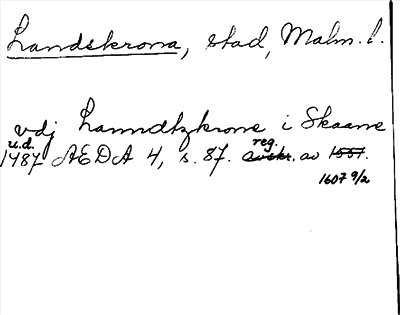 Landskrona, stad, Malm. l.
vdj Lanndtzkrone i Skaane
u.d.
1487 AEDA 4, s. 87. reg. avskr. av 1551.
1607 9/2